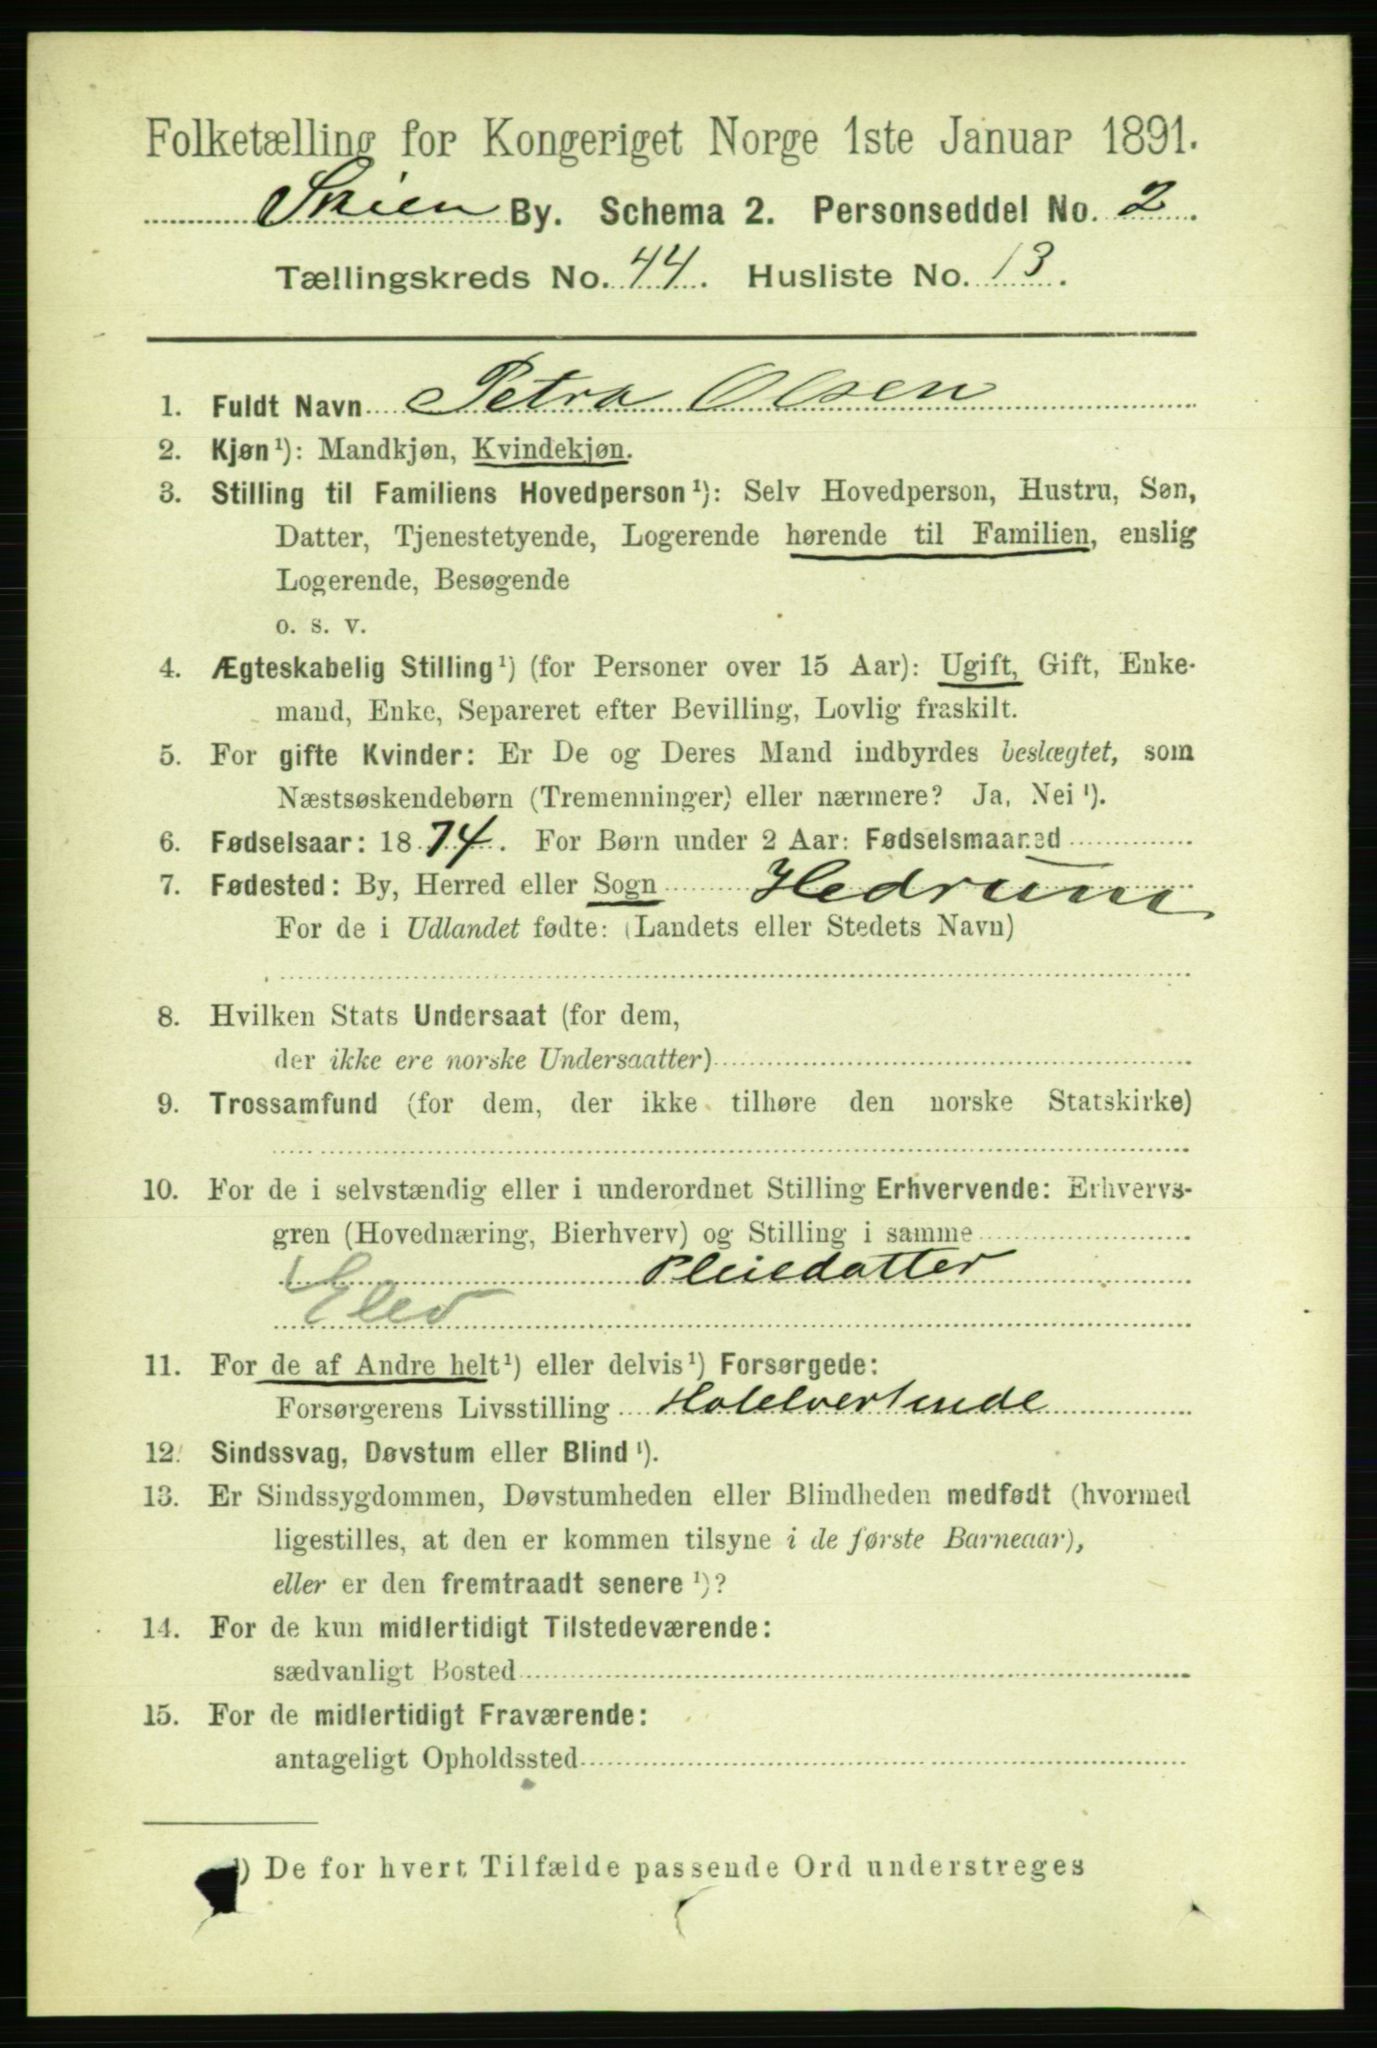 Folketælling for Kongeriget Norge 1ste Januar 1891.
Skien By. Schema 2. Personseddel No. 2.
Tællingskreds No. 44. Husliste No. 13.
1. Fuldt Navn Petra Olsen
2. Kjøn¹): Mandkjøn, Kvindekjøn.
3. Stilling til Familiens Hovedperson¹): Selv Hovedperson, Hustru, Søn,
Datter, Tjenestetyende, Logerende hørende til Familien, enslig
Logerende, Besøgende
o. s. v.
4. Ægteskabelig Stilling¹) (for Personer over 15 Aar): Ugift, Gift, Enke-
mand, Enke, Separeret efter Bevilling, Lovlig fraskilt.
5. For gifte Kvinder: Er De og Deres Mand indbyrdes beslægtet, som
Næstsøskendebørn (Tremenninger) eller nærmere? Ja, Nei¹).
6. Fødselsaar: 1874. For Børn under 2 Aar: Fødselsmaaned
7. Fødested: By, Herred eller Sogn Hedrum
For de i Udlandet fødte: (Landets eller Stedets Navn)
8. Hvilken Stats Undersaat (for dem,
der ikke ere norske Undersaatter)
9. Trossamfund (for dem, der ikke tilhøre den norske Statskirke)
10. For de i selvstændig eller i underordnet Stilling Erhvervende: Erhvervs-
gren (Hovednæring, Bierhverv) og Stilling i samme
Pleiedatter
Elev
11. For de af Andre helt¹) eller delvis¹) Forsørgede:
Forsørgerens Livsstilling Hotelvertinde
12. Sindssvag, Døvstum eller Blind¹).
13. Er Sindssygdommen, Døvstumheden eller Blindheden medfødt (hvormed
ligestilles, at den er kommen tilsyne i de første Barneaar),
eller er den fremtraadt senere¹)?
14. For de kun midlertidigt Tilstedeværende:
sædvanligt Bosted
15. For de midlertidigt Fraværende:
antageligt Opholdssted
¹) De for hvert Tilfælde passende Ord understreges